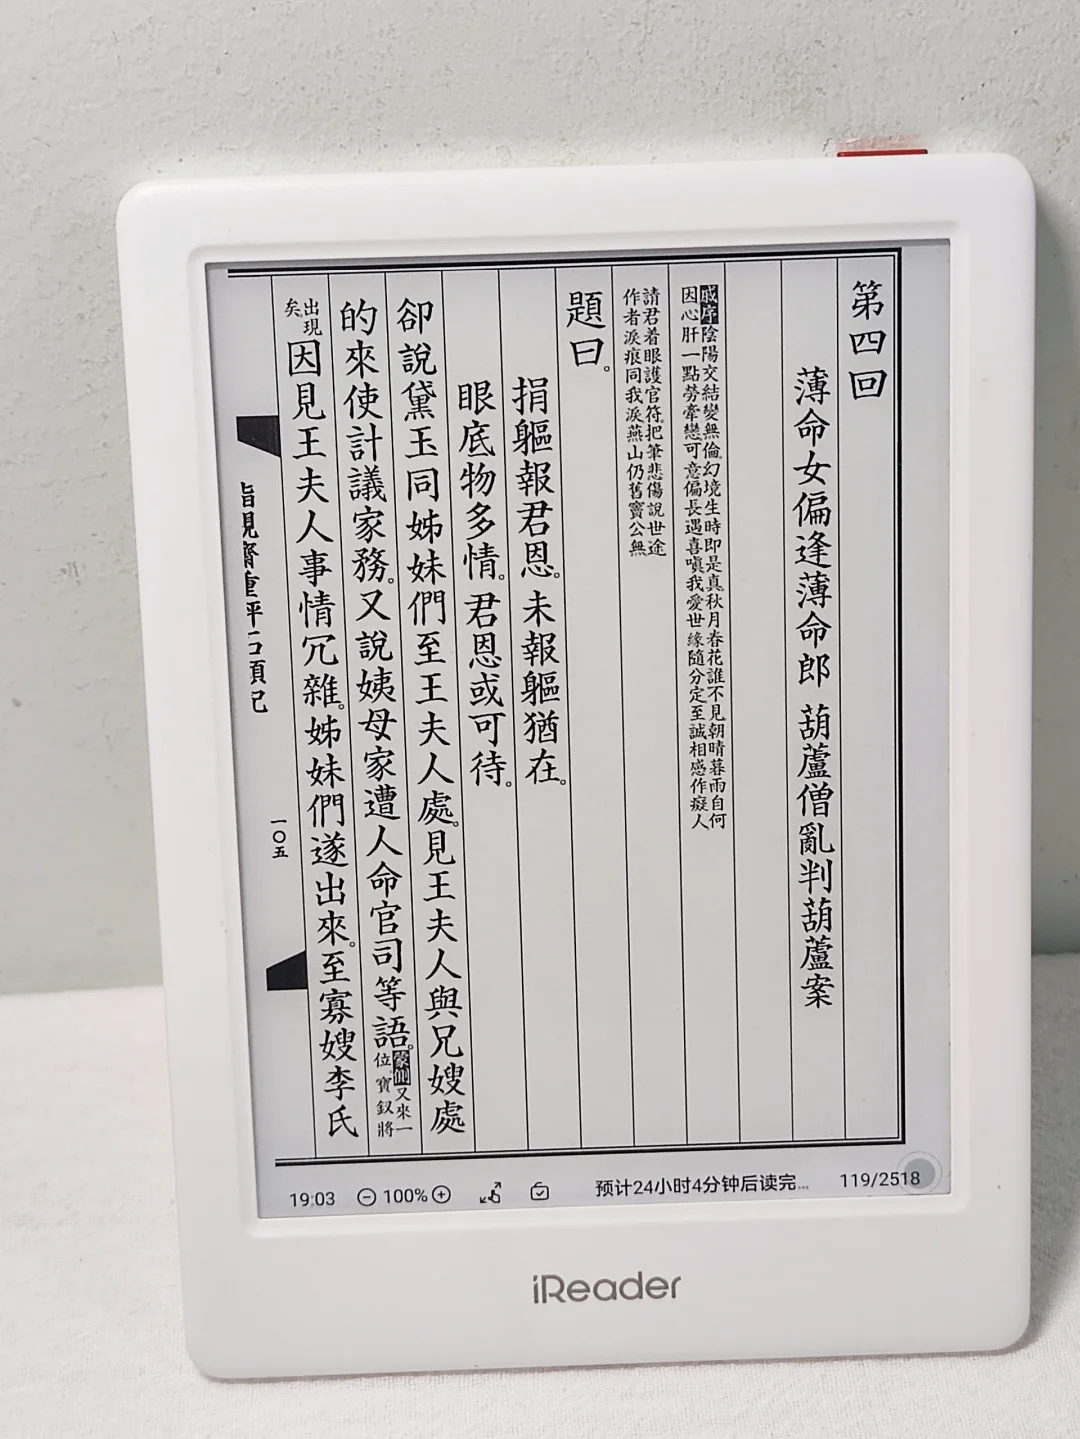 第四回
薄命女偏逢薄命郎 葫蘆僧亂判葫蘆案
戚序陰陽交結變無倫幻境生時即是真秋月春花誰不見朝晴暮雨自何
因心肝一點勞牽戀可意偏長遇喜嗔我愛世緣隨分定至誠相感作癡人
請君着眼護官符把筆悲傷說世途
作者淚痕同我淚燕山仍舊竇公無
題曰。
捐軀報君恩。未報軀猶在。
眼底物多情。君恩或可待。
卻說黛玉同姊妹們至王夫人處。見王夫人與兄嫂處
的來使計議家務。又說姨母家遭人命官司等語。蒙側又來一
位寶釵將
出現
矣
因見王夫人事情冗雜。姊妹們遂出來。至寡嫂李氏
脂硯齋重評石頭記
一〇五
19:03 100% 预计24小时4分钟后读完... 119/2518
iReader